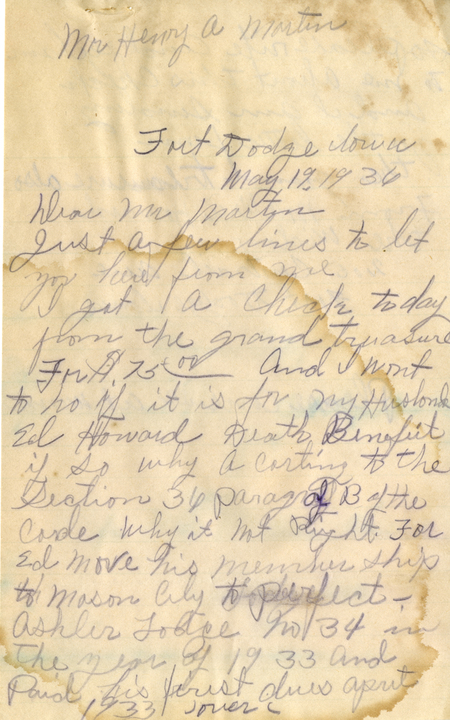 Mr Henry A Martin
Fort Dodge Iowa
May 19, 1936
Dear Mr Martin
Just a few lines to let
you here from me
I got A Check today
from the grand treasure
For $ 75 00 And I wont
to no if it is for my Husband
Ed Howard Death Benefit
if so why A corting to the
Section 36 paragraf B of the
Code why it Not Right. For
Ed move his member ship
to Mason City to perfect-
Ashler Lodge No 34 in
the year of 1933 And
Paid his first dues april
1933 (over